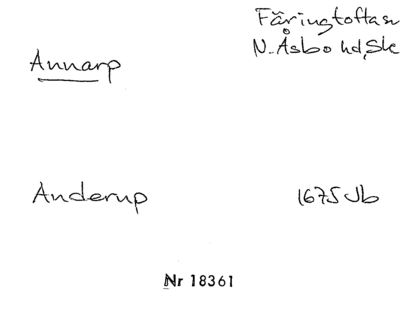 Färingtofta sn
Annarp
N. Åsbo hd, Sk
Anderup
1675 Jb
Nr 18361